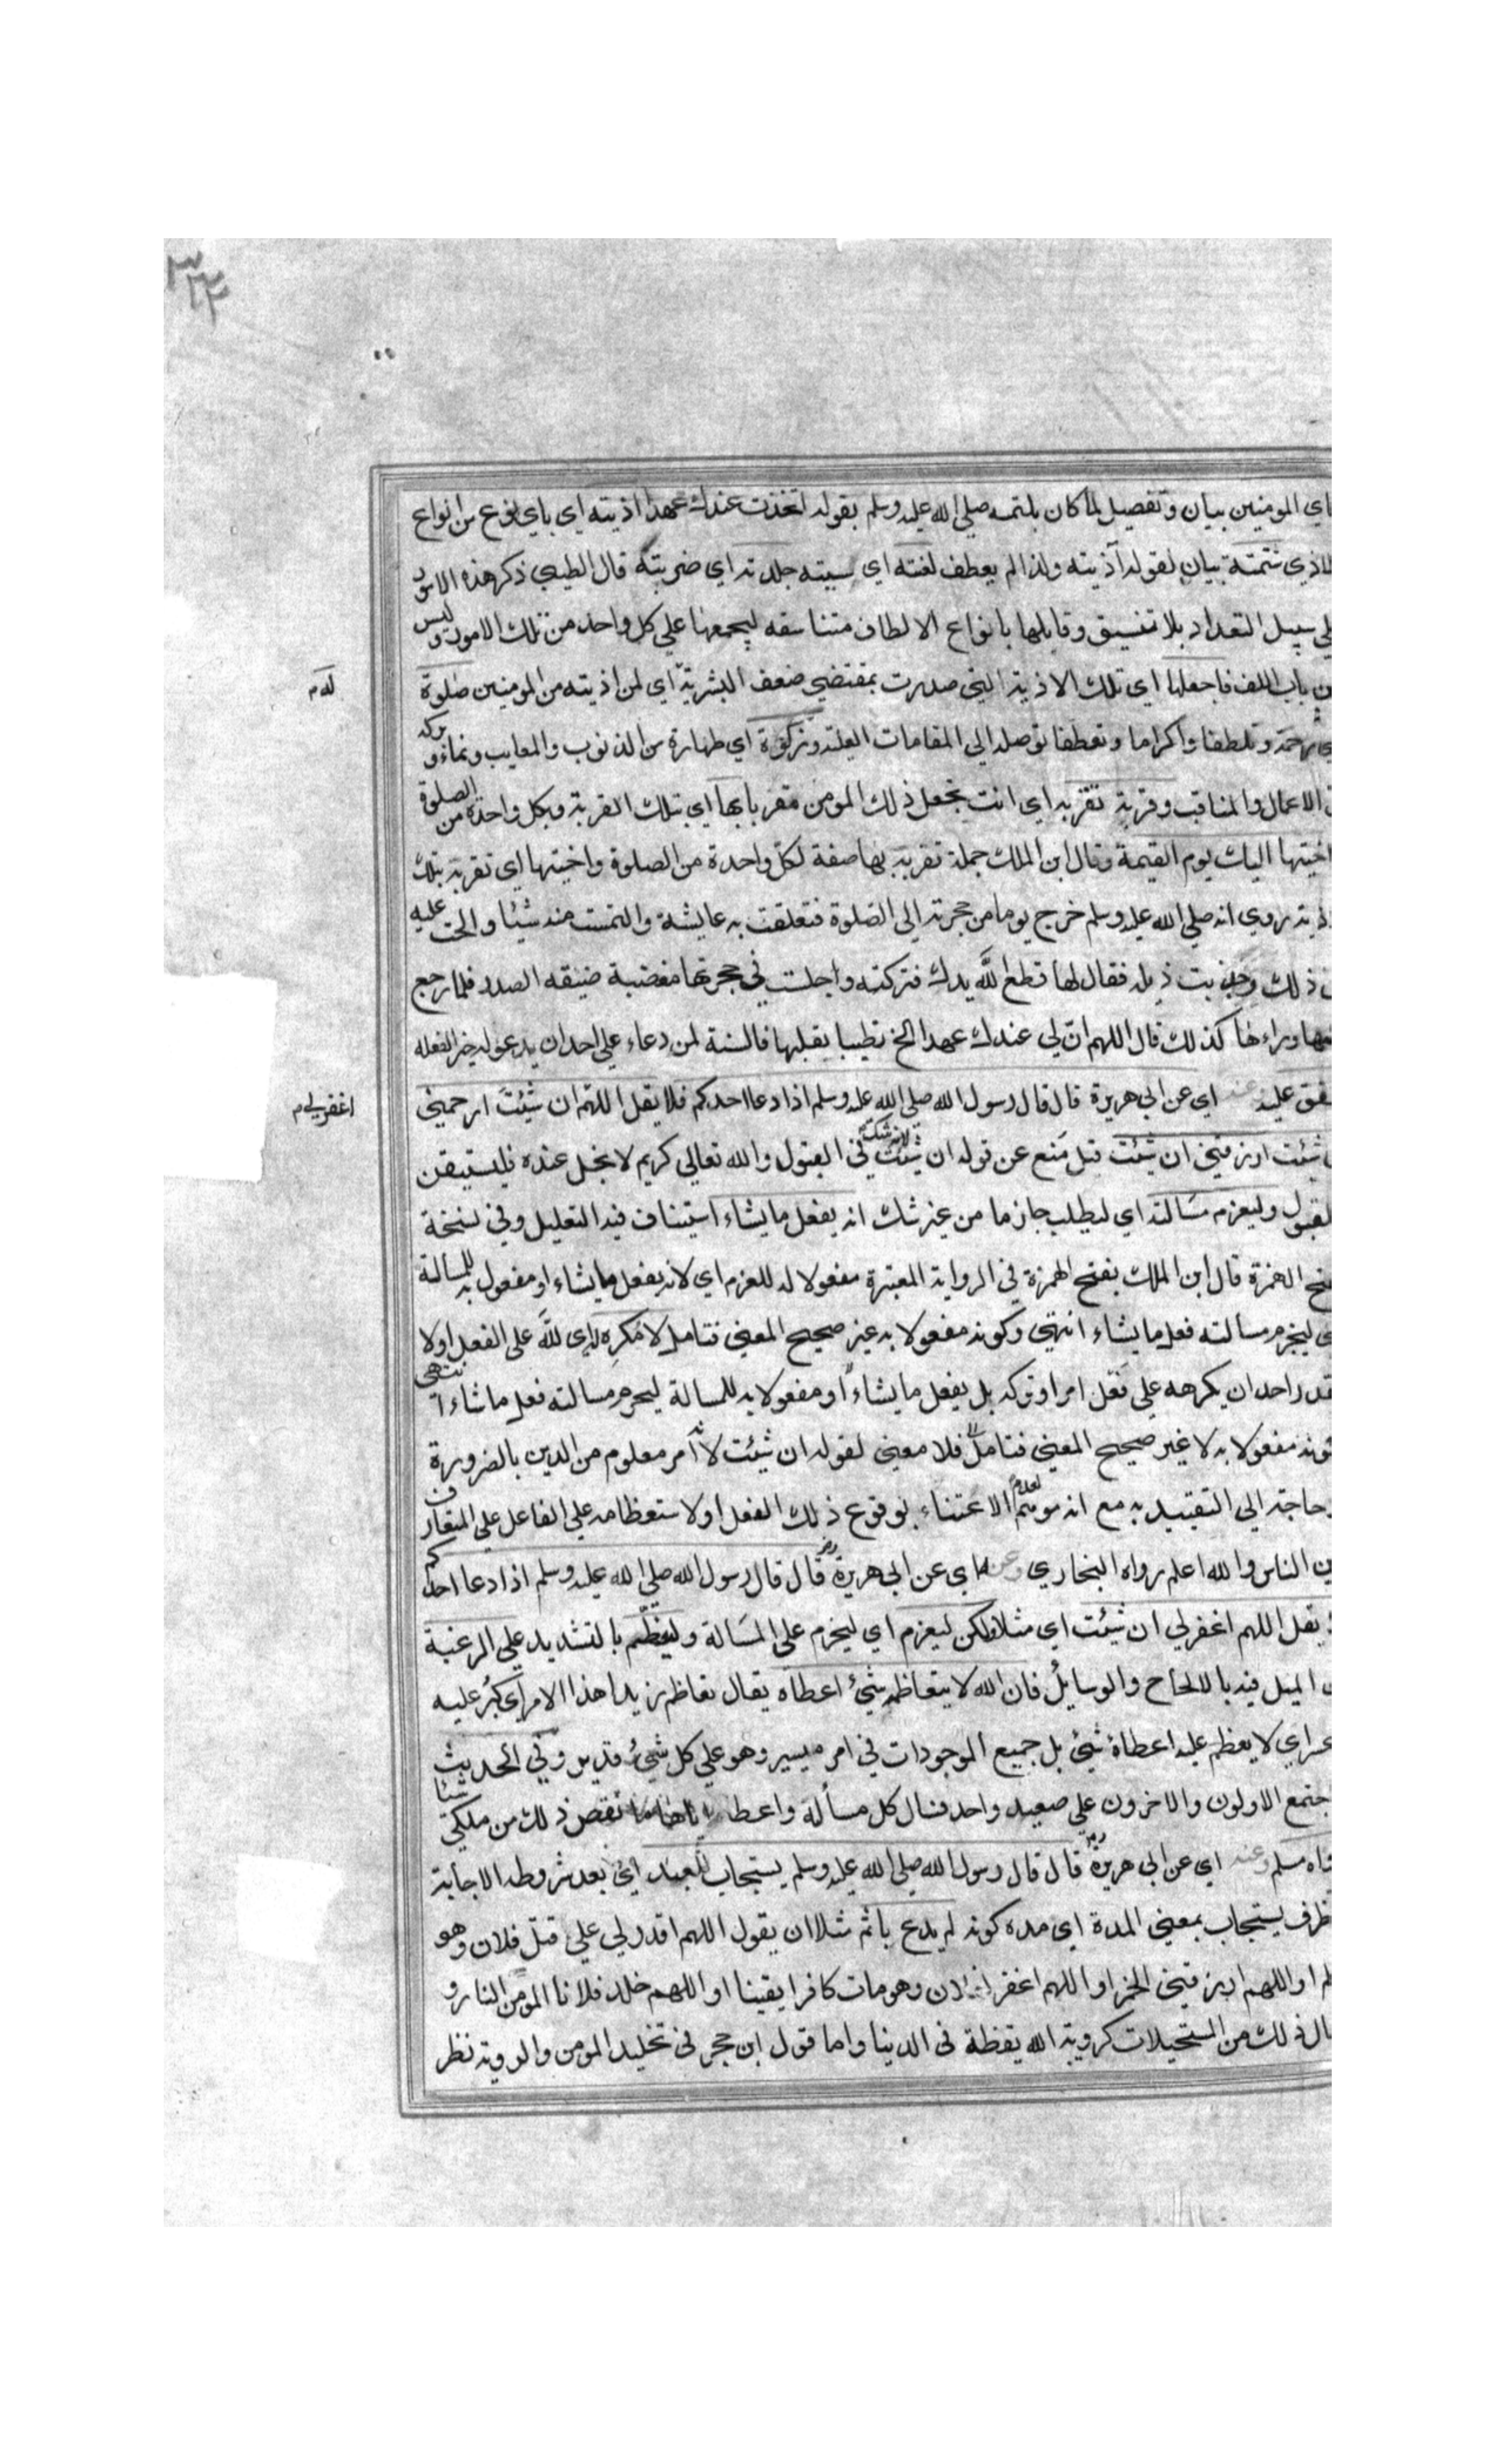 ٣٣٤
اي المومنين بيان وتفصيل لما كان يلتمسه صلي الله عليه وسلم بقوله اتخذت عندك عهدا اذيته اي باي نوع من انواع
الاذي تتمة بيان لقوله آذيته ولذا لم يعطف لعنته اي سببته جلدته اي ضربته قال الطيبي ذكر هذه الامور
علي سبيل التعداد بلا تنسيق وقابلها بانواع الالطاف متناسقه ليجمعها علي كل واحد من تلك الامور وليس
من باب اللف فاجعلها اي تلك الاذية التي صدرت بمقتضي ضعف البشرية اي لمن اذيته من المومنين صلوة
له م
اي رحمة وتلطفا واكراما وتعطفا توصله الي المقامات العلية وزكوة اي طهارة من الذنوب والمعايب ونماء وبركة
في الاعمال والمناقب وقربة تقربه اي انت تجعل ذلك المومن مقربا بها اي بتلك القربة وبكل واحدة من الصلوة
اختيها اليك يوم القيمة وقال ابن الملك جملة تقربه بها صفة لكل واحدة من الصلوة واختيها اي تقربه بتلك
اذيته روي انه صلي الله عليه وسلم خرج يوما من حجرته الي الصلوة فتعلقت به عايشة والتمست منه شيئا والحت عليه
في ذلك وجذبت ذيله فقال لها قطع الله يدك فتركته وجلست في حجرتها مغضبة ضيقه الصدر فلما رجع
اليها وراءها كذلك قال اللهم ان لي عندك عهدا الخ تطييبا بقلبها فالسنة لمن دعاء علي احد ان يدعو له خبر الفعله
متفق عليه وعنه اي عن ابي هريرة قال قال رسول الله صلي الله عليه وسلم اذا دعا احدكم فلا يقل اللهم ان شئت ارحمني
اغفر لي م
ان شئت ارزقني ان شئت قيل منع عن قوله ان شئت لانه شك في القبول والله تعالي كريم لا بخل عنده فليستيقن
القبول وليعزم مسالته اي ليطلب جازما من غير شك انه يفعل ما يشاء استيناف فيه التعليل وفي نسخة
بفتح الهمزة قال ابن الملك بفتح الهمزة في الرواية المعتبرة مفعولا له للعزم اي لانه يفعل ما يشاء او مفعول به للمسالة
اي ليجزم مسالته فعل ما يشاء انتهي وكونه مفعولا به غير صحيح المعني فتامل لا مكره له اي لله علي الفعل او لا
يقدر احد ان يكرهه علي فعل امر او تركه بل يفعل ما يشاء او مفعولا به للمسالة ليجزم مسالته فعل ما شاء انتهي
كونه مفعولا به لا غير صحيح المعني فتامل فلا معني لقوله ان شئت لانه امر معلوم من الدين بالضرورة
حاجة الي التقييد به مع انه موهم لعدم الاعتناء بوقوع ذلك الفعل او لاستعظامه علي الفاعل علي المتعارف
بين الناس والله اعلم رواه البخاري وعنه اي عن ابي هريرة رض قال قال رسول الله صلي الله عليه وسلم اذا دعا احدكم
يقل اللهم اغفر لي ان شئت اي مثلا ولكن ليعزم اي ليجزم علي المسالة وليعظم بالتشديد علي الرغبة
اي الميل فيه بالالحاح والوسايل فان الله لا يتعاظمه شئ اعطاه يقال تعاظم زيدا هذا الامر اي كبر عليه
عسر اي لا يعظم عليه اعطاء شئ بل جميع الموجودات في امر ميسير وهو علي كل شئ قدير وفي الحديث
اجتمع الاولون والاخرون علي صعيد واحد فسال كل مسألة واعطا ما نقص ذلك من ملكي شيئا
رواه مسلم وعنه اي عن ابي هريرة رض قال قال رسول الله صلي الله عليه وسلم يستجاب للعبد اي بعد شروط الاجابة
ظرف يستجاب بمعني المدة اي مدة كونه لم يدع باثم مثلا ان يقول اللهم اقدرلي علي قتل فلان وهو
مسلم او اللهم ارزقني الخمر او اللهم اغفر لفلان وهو مات كافرا يقينا او اللهم خلد فلانا المومن النار و
مثال ذلك من المستحيلات كروية الله يقظة في الدنيا واما قول ابن حجر في تخليد المومن والروية نظر